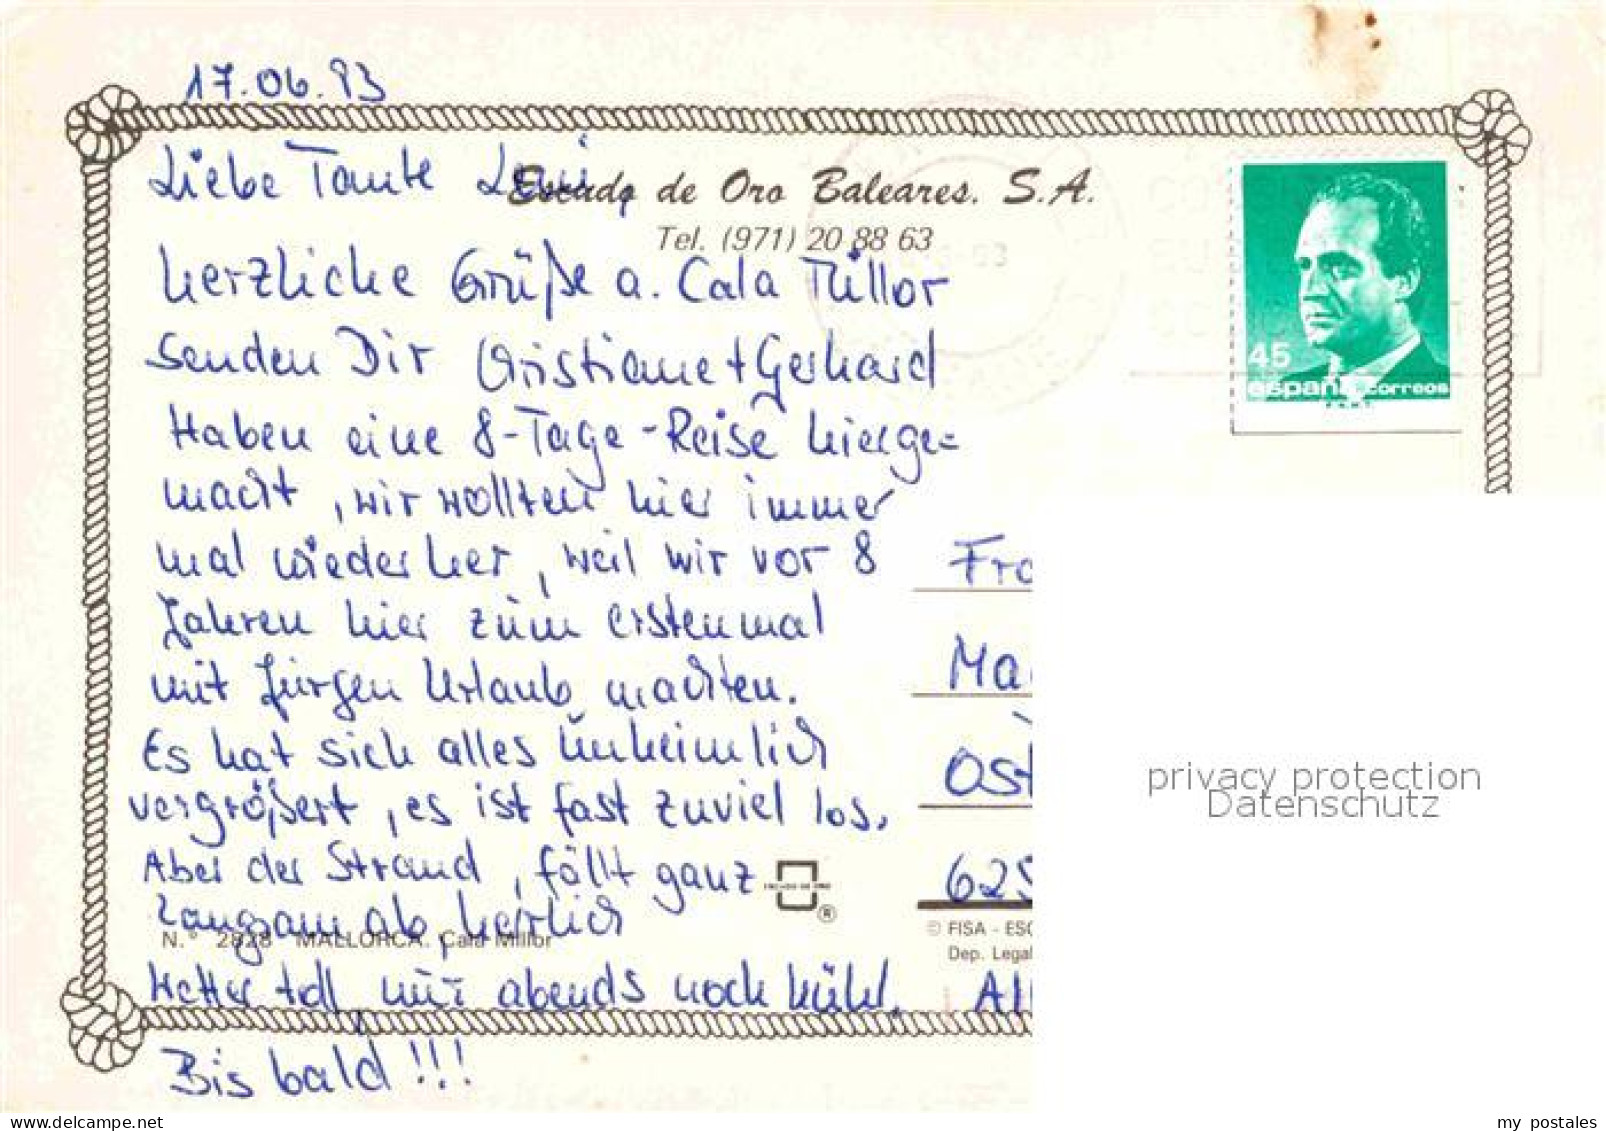 17.06.93
Escudo de Oro Baleares. S.A.
Tel. (971) 20 88 63
Liebe Tante
herzliche Grüße a. Cala Millor
senden Dir Christiane + Gerhard
Haben eine 8-Tage-Reise hierge=
macht, wir wollten hier immer
mal wieder her, weil wir vor 8
Jahren hier zum erstenmal
mit Jürgen Urlaub machten.
Es hat sich alles unheimlich
vergrößert, es ist fast zuviel los.
Aber der Strand, fällt ganz
langsam ab, herlich
Wetter toll, nur abends noch kühl.
Bis bald!!!
N.° 2828 MALLORCA. Cala Millor
45
españa correos
Fra
Ma
Ost
625
© FISA - ESC
Dep. Legal
All
privacy protection
Datenschutz
my_postales
www.delcampe.net